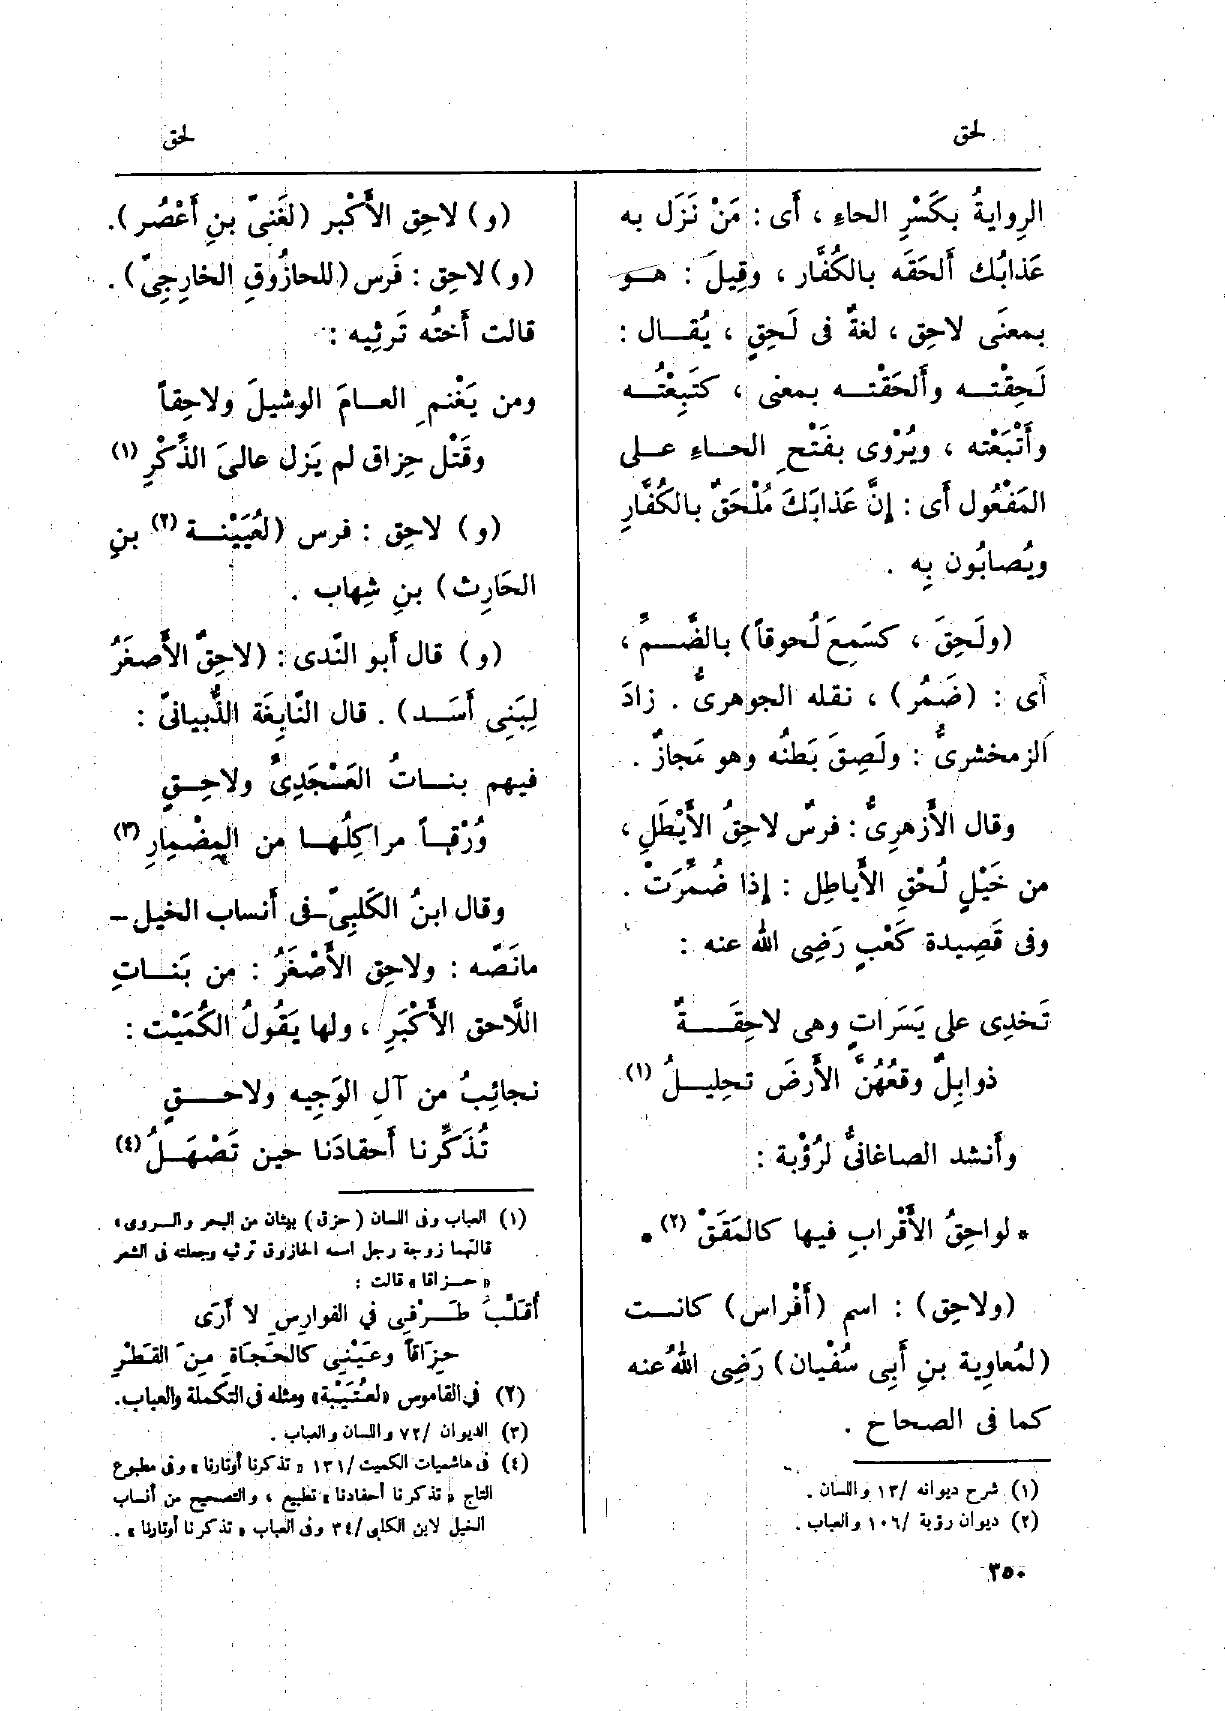 لحق
لحق
الرِوايةُ بكَسْرِ الحاءِ ، أى : مَنْ نَزَل به
عَذابُك أَلحَقَه بالكُفَّار ، وقِيلَ : هـو
بمعنَى لاحِق ، لغةٌ فى لَحِقٍ ، يُقـال :
لَحِقْتـه وأَلحَقْتـه بمعنى ، كتَبِعْتُـه
وأَتْبَعْته ، ويُرْوى بفَتْحِ الحـاءِ عـلى
المَفْعُول أَى : إِنَّ عَذابَكَ مُلْحَقٌ بالكُفَّارِ
ويُصابُون بِه .
(ولَحِقَ ، كسَمِعَ لُحوقاً) بالضَّـمِّ ،
أَى : (ضَمُر) ، نقله الجوهرىُّ . زادَ
الزمخشرىُّ : ولَصِقَ بَطنُه وهو مَجازٌ .
وقال الأَزهرىُّ : فرسٌ لاحِقُ الأَيْطَلِ ،
من خَيْلٍ لُحْقِ الأَياطِل : إِذا ضُمِّرَتْ .
وفى قَصِيدة كَعْبٍ رَضِى الله عنه :
تَخدِى على يَسَراتٍ وهى لاحِقَـةٌ
ذوابِلٌ وقعُهُنَّ الأَرضَ تحلِيـلُ (١)
وأَنشد الصاغانىُّ لرُؤْبة :
* لواحِقُ الأَقْرابِ فيها كالمَقَقْ (٢) *
(ولاحِق) : اسم (أَفْراس) كانـت
(لمُعاوِية بنِ أَبِى سُفْيان) رَضِى اللهُ عنه
كما فى الصحاح .
(١) شرح ديوانه /١٣ واللسان .
(٢) ديوان رؤبة /١٠٦ والعباب .
(و) لاحِق الأَكْبر (لغَنِىّ بنِ أَعْصُر) .
(و) لاحِق : فَرَس (للحازُوقِ الخارِجِىّ) .
قالت أُختُه تَرثِيه :
ومن يَغْنمِ العـامَ الوشيلَ ولاحِقاً
وقَتْل حِزاق لم يَزل عالىَ الذِّكْرِ (١)
(و) لاحِق : فرس (لعُيَيْنـة (٢) بنِ
الحَارِث) بنِ شِهاب .
(و) قال أَبو النَّدى : (لاحِقٌ الأَصغَرُ
لِبَنِى أَسَـد) . قال النَّابِغَة الذُّبيانىّ :
فيهم بنـاتُ العَسْجَدِىِّ ولاحِـقٍ
وُرْقـاً مراكِلُهـا من المِضْمارِ (٣)
وقال ابنُ الكَلبِىّ-فى أَنساب الخيل-
مانَصّه : ولاحِق الأَصْغَرُ : من بَنـاتِ
اللَّاحق الأَكْبَرِ ، ولها يَقُولُ الكُمَيْت :
نجائِبُ من آلِ الوَجِيه ولاحـقٍ
تُذَكِّرنا أَحقادَنا حين تَصْهَـلُ (٤)
(١) العباب وفى اللسان (حزق) بيتان من البحر والروى ،
قالتهما زوجة رجل اسمه الحازوق ترثيه وجعلته فى الشعر
« حـزاقا » قالت :
أُقلِّبُ طَـرْفِي في الفوارِسِ لا أَرَى
حِزَاقاً وعَيْنِي كالحَجَاةِ مِنَ القَطْرِ
(٢) فى القاموس «لعُتَيْبة» ومثله فى التكملة والعباب .
(٣) الديوان /٧٢ واللسان والعباب .
(٤) فى هاشميات الكميت /١٣١ « تذكرنا أوتارنا » وفى مطبوع
التاج « تذكرنا أحفادنا » تطبيع ، والتصحيح من أنساب
الخيل لابن الكلبى /٣٤ وفى العباب « تذكرنا أوتارنا » .
٣٥٠